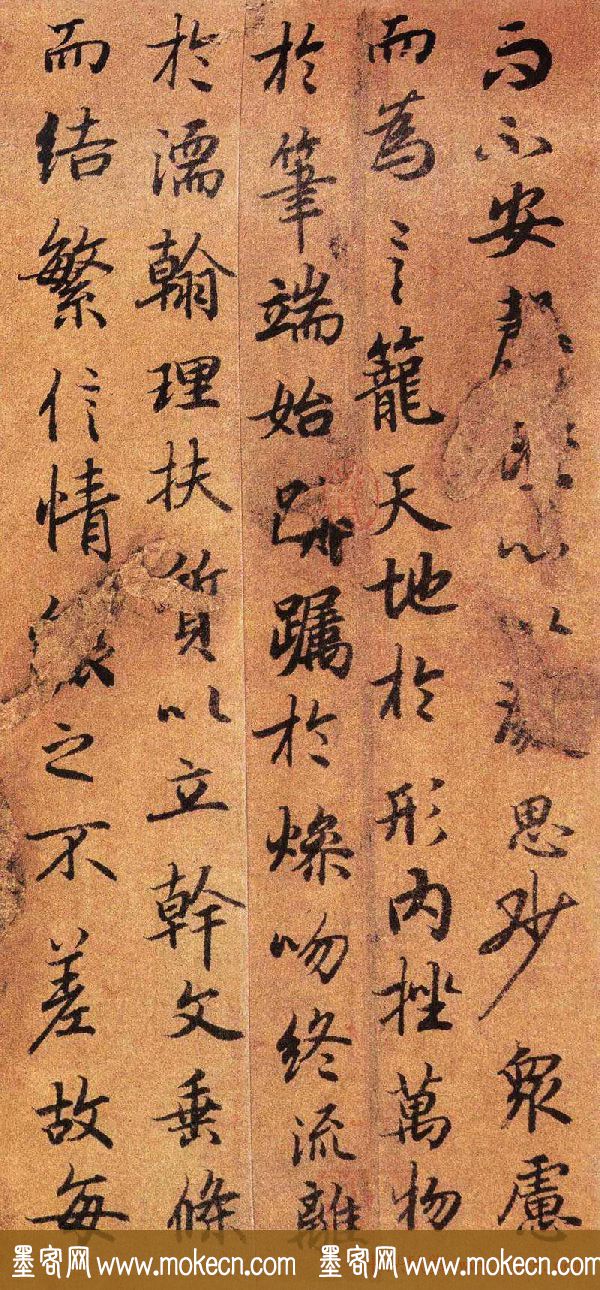 而不安心以凝思眇眾慮
而為言籠天地於形內挫萬物
於筆端始躅於燥吻終流離
於濡翰理扶質以立幹文垂條
而結繁信情之不差故每
墨客网 www.mokecn.com 墨客网 www.mokecn.com